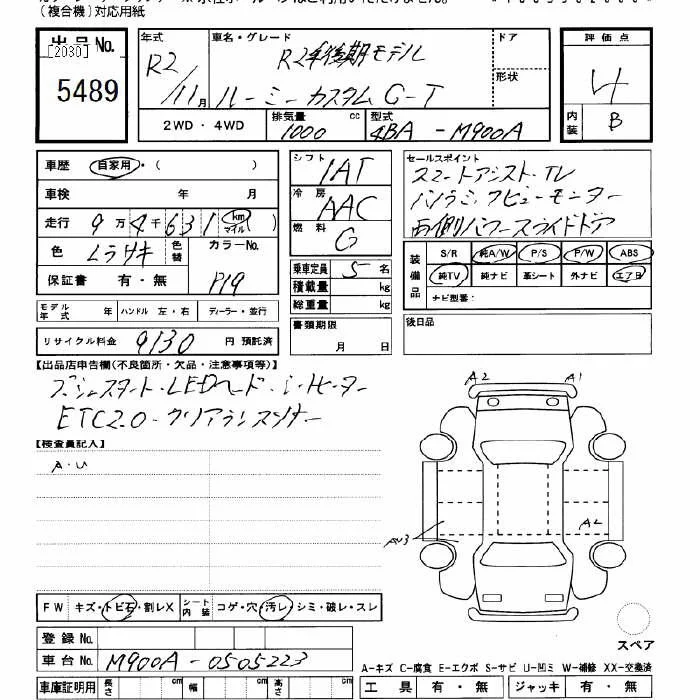 (複合機)対応用紙
出品No.
[2030]
5489
年式
R2/11月
車名・グレード
R2年後期モデル
ルーミーカスタム G-T
ドア
形状
2WD・4WD
排気量 cc
1000
型式
4BA-M900A
評価点
4
内装
B
車歴 自家用・( )
車検 年 月
走行 9万4千631 km マイル
色 ムラサキ 色替 カラーNo.
P19
保証書 有・無
モデル年式 年 ハンドル 左・右 ディーラー・並行
リサイクル料金 9130 円 預託済
シフト IAT
冷房 AAC
燃料 G
乗車定員 5 名
積載量 kg
総重量 kg
書類期限
月 日
セールスポイント
スマートアシスト・TV
パノラミックビューモニター
両側パワースライドドア
装備品
S/R 純A/W P/S P/W ABS
純TV 純ナビ 革シート 外ナビ エアB
ナビ型番:
後日品
【出品店申告欄(不良箇所・欠品・注意事項等)】
LEDヘッド・シートヒーター
ETC2.0・クリアランスソナー
【検査員記入】
A・U
A2 A1
AU3
A2
FW キズ・トビ石・割レX シート内装 コゲ・穴・汚レ・シミ・破レ・スレ
登録No.
車台No. M900A-0505223
車庫証明用 長さ cm 幅 cm 高さ cm
スペア
A-キズ C-腐食 E-エクボ S-サビ U-凹ミ W-補修 XX-交換済
工具 有・無 ジャッキ 有・無